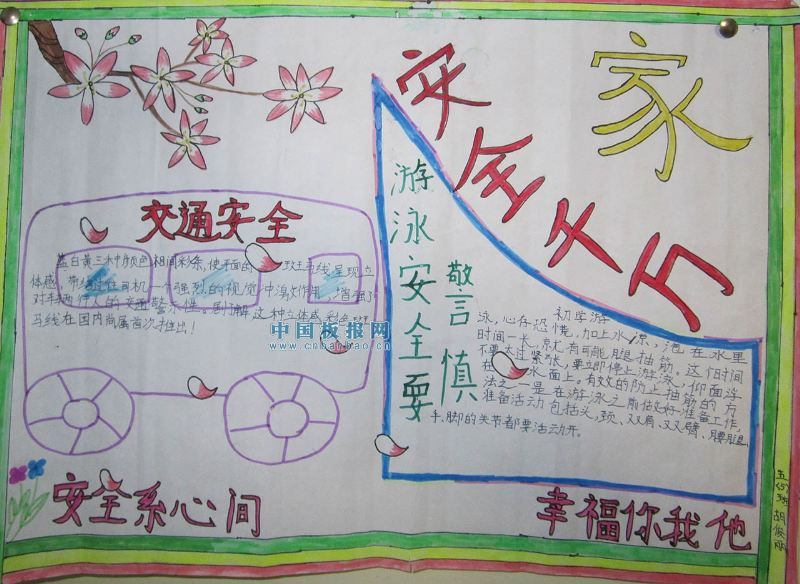 安全千万家
交通安全
蓝白黄三种颜色相间彩条,使平面的 斑马线呈现立
体感,带给过往司机一个强烈的视觉冲击作用,增强了
对手 行人的交通警示性。 这种立体感彩色斑
马线在国内尚属首次推出!
中国板报网
www.cnbanbao.cn
游泳安全要
敬言慎
初学游
泳,心存恐慌,加上水凉,泡在水里
时间一长,就有可能腿抽筋。这个时间
不要太过紧张,要立即停止游泳,仰面浮
在 水面上。有效的防止抽筋的方
法之一是在游泳之前做好准备工作,
准备活动包括头,颈、双肩、双臂、腰腿、
手、脚的关节都要活动开。
安全系心间
幸福你我他
五 班 胡俊